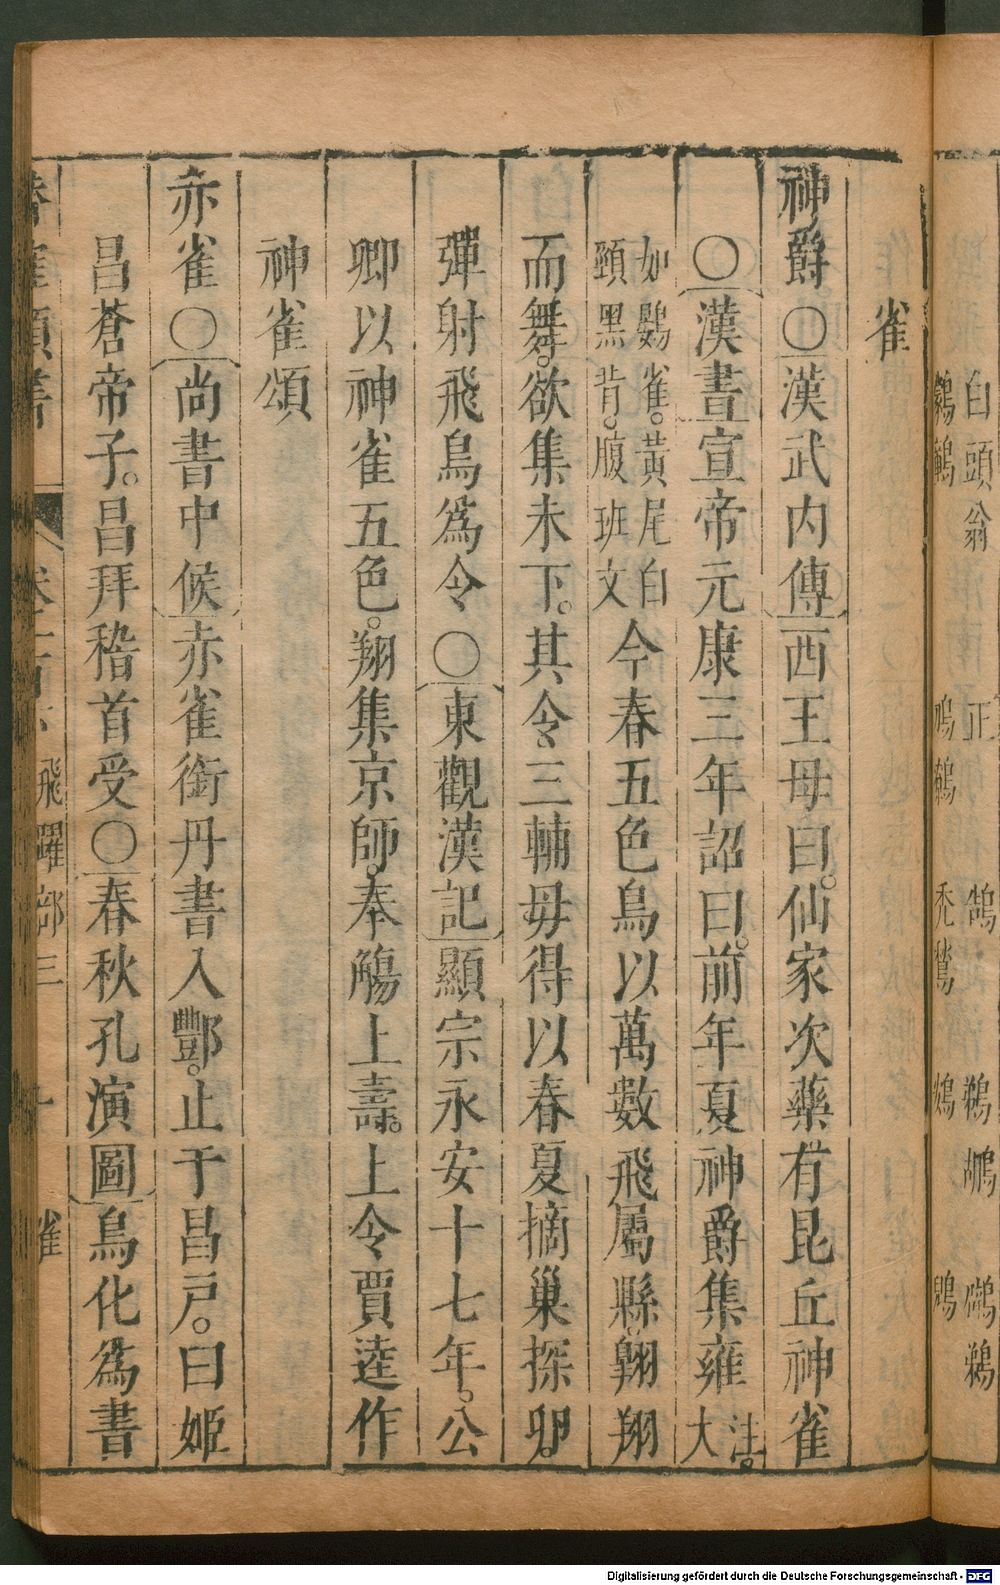 白頭翁　正　鵠　鵜鶘　鸕鶿
雀
神爵〇漢武內傳西王母曰。仙家次藥有昆丘神雀
〇漢書宣帝元康三年詔曰。前年夏神爵集雍注。大
如鷃雀。黃尾白
頸黑背。腹班文
今春五色鳥以萬數飛屬縣。翱翔
而舞。欲集未下。其令三輔毋得以春夏摘巢探卵。
彈射飛鳥爲令〇東觀漢記顯宗永安十七年。公
卿以神雀五色。翔集京師。奉觴上壽。上令賈逵作
神雀頌
赤雀〇尚書中候赤雀銜丹書入酆。止于昌戶。曰姬
昌蒼帝子。昌拜稽首受〇春秋孔演圖鳥化爲書
飛躍部三　雀
Digitalisierung gefördert durch die Deutsche Forschungsgemeinschaft - DFG